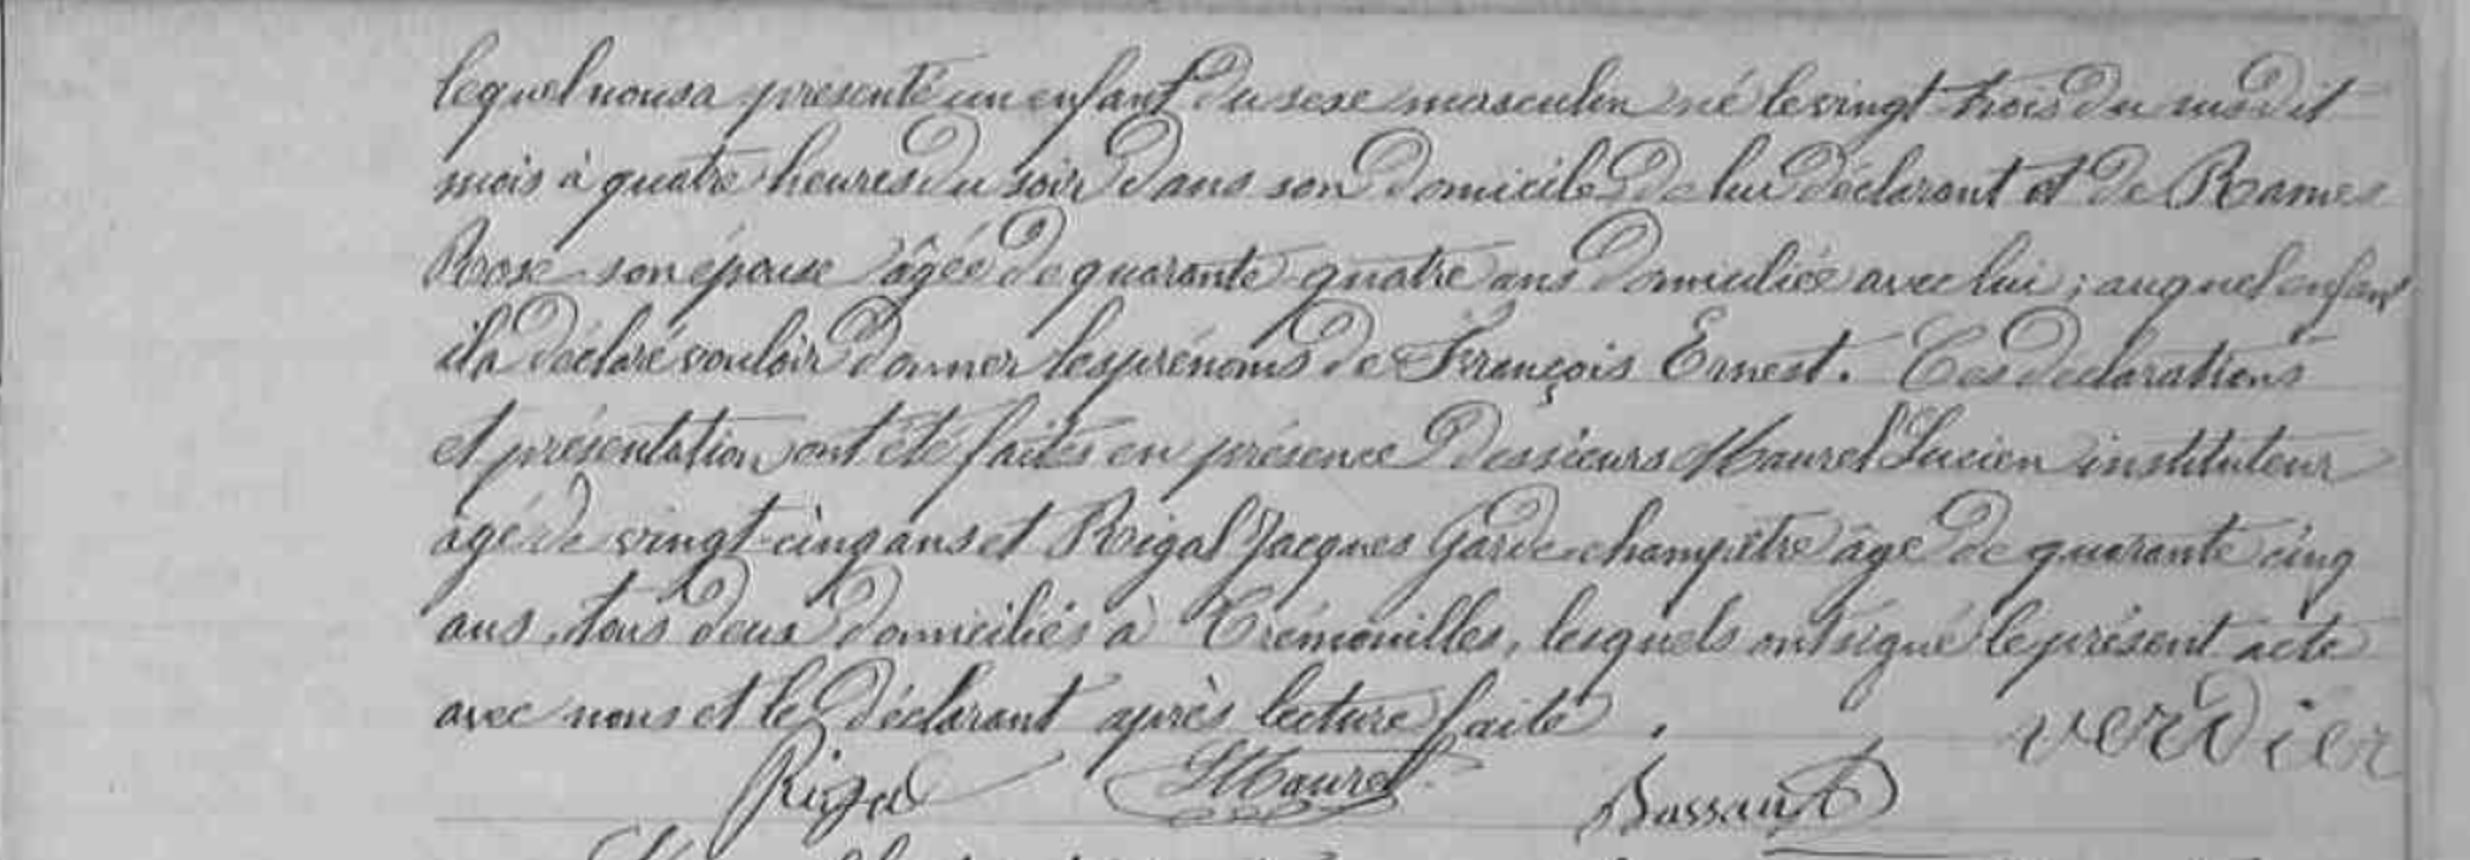 lequel nous a présenté un enfant du sexe masculin né le vingt trois du susdit
mois à quatre heures du soir dans son domicile de lui déclarant et de Rames
Rose son épouse âgée de quarante-quatre ans domiciliée avec lui ; auquel enfant
il a déclaré vouloir donner les prénoms de François Ernest. Ces déclarations
et présentation ont été faites en présence des sieurs Maurel Lucien instituteur
âgé de vingt-cinq ans et Rigal Jacques Garde-champêtre âgé de quarante cinq
ans, tous deux domiciliés à Trémouilles, lesquels ont signé le présent acte
avec nous et le déclarant après lecture faite.
verdier
Rigal LMaurel